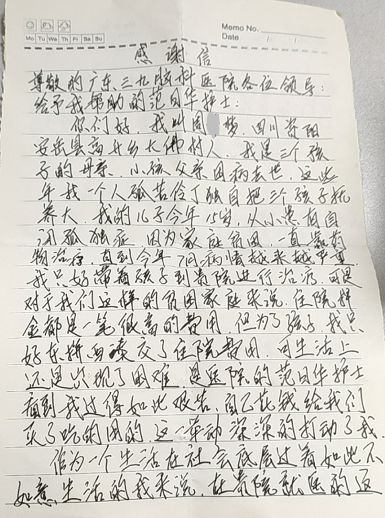 Memo No.
Mo Tu We Th Fr Sa Su
Date / /
感谢信
尊敬的广东三九脑科医院各位领导:
给予我帮助的范日华护士:
你们好,我叫周梦,四川资阳
安岳县高升乡大佛村人,我是三个孩
子的母亲,小孩父亲因病去世,这些
年我一个人孤苦伶丁独自把三个孩子抚
养大,我的儿子今年15岁,从小患有自
闭孤独症,因为家庭贫困,一直靠药
物治疗,直到今年7月病情越来越严重
我只好带着孩子到贵院进行治疗,可是
对于我们这样的贫困家庭来说,住院押
金都是一笔很高的费用,但为了孩子我只
好东拼西凑交了住院费用,可生活上
还是出现了困难,是医院的范日华护士
看到我过得如此艰苦,自己花钱给我们
买了吃的用的,这一举动深深的打动了我.
作为一个生活在社会底层过着如此不
如意生活的我来说,在贵院就医的这